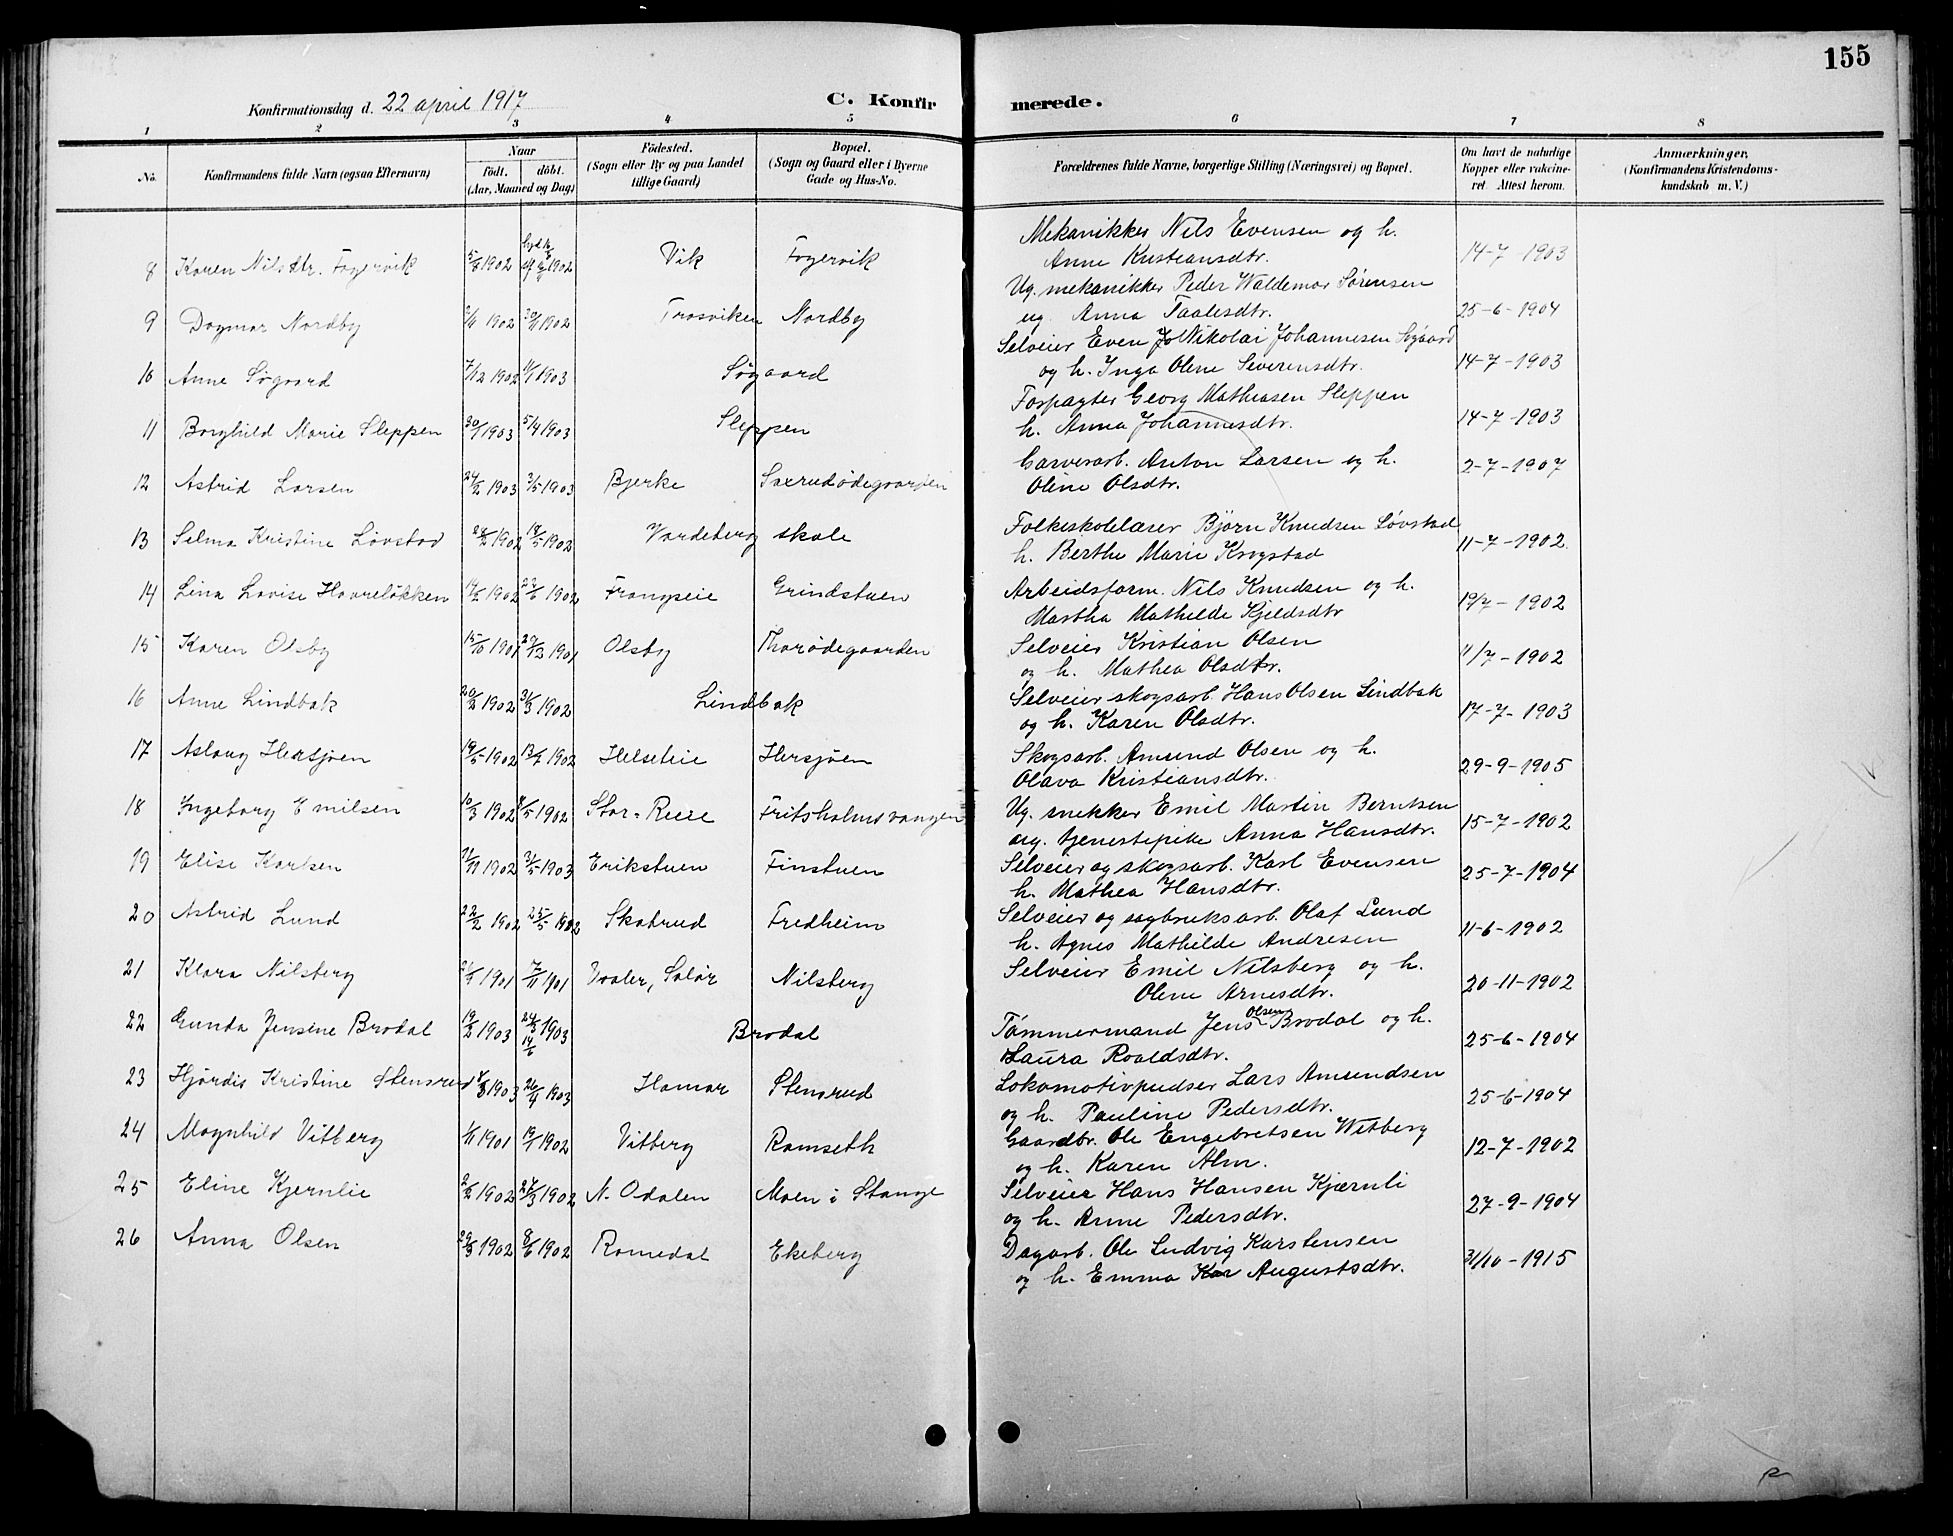 155
Konfirmationsdag d. 22 april 1917 C. Konfirmerede.
1 2 3 4 5 6 7 8
No. Konfirmandens fulde Navn (ogsaa Efternavn) Naar födt. döbt. (Aar, Maaned og Dag) Födested. (Sogn eller By og paa Landet tillige Gaard) Bopæl. (Sogn og Gaard eller i Byerne Gade og Hus-No. Forældrenes fulde Navne, borgerlige Stilling (Næringsvei) og Bopæl. Om havt de naturlige Kopper eller vakcineret. Attest herom. Anmærkninger. (Konfirmandens Kristendomskundskab m. V.)
8 Karen Nilsdtr. Fagervik 1902 1902 Vik Fagervik Mekanikker Nils Evensen og h. 14-7-1903
Anne Kristiansdtr.
9 Dagmar Nordby 1902 1902 Trosviken Nordby Ug. mekanikker Peder Waldemar Sørensen 25-6-1904
ug. Anna Taalesdtr.
10 Anne Søgaard 7/12 1902 1/1 1903 Søgaard Selveier Even Nikolai Johannesen Søgaard 14-7-1903
og h. Inga Oline Severensdtr.
11 Borghild Marie Sleppen 30/1 1903 5/4 1903 Sleppen Forpagter Georg Mathiasen Sleppen 14-7-1903
h. Anna Johannesdtr.
12 Astrid Larsen 24/2 1903 3/5 1903 Bjerke Saxrudødegaarden Garverarb. Anton Larsen og h. 2-7-1907
Oline Olsdtr.
13 Selma Kristine Løvstad 1902 18/5 1902 Vardeberg skole Folkeskolelærer Bjørn Knudsen Løvstad 11-7-1902
h. Berthe Marie Krogstad
14 Lina Lovise Havreløkken 14/2 1902 22/6 1902 Frangseie Grindstuen Arbeidsform. Nils Knudsen og h. 19/7-1902
Martha Mathilde Kjeldsdtr
15 Karen Olsby 15/10 1901 29/12 1901 Olsby Thorødegaarden Selveier Kristian Olsen 11/7-1902
og h. Mathea Olsdtr.
16 Anne Lindbak 20/2 1902 31/3 1902 Lindbak Selveier skogsarb. Hans Olsen Lindbak 17-7-1903
og h. Karen Olsdtr.
17 Aslaug Hersjøen 19/5 1902 13/7 1902 Helseteie Hersjøen Skogsarb. Amund Olsen og h. 29-9-1905
Olava Kristiansdtr.
18 Ingeborg Emilsen 10/3 1902 /5 1902 Stor-Reeie Fritsholmsvangen Ug. snekker Emil Martin Berntsen 15-7-1902
ug. tjenestepike Anna Hansdtr.
19 Elise Karlsen 1902 3/5 1903 Erikstuen Finstuen Selveier og skogsarb. Karl Evensen 25-7-1904
h. Mathea Hansdtr.
20 Astrid Lund 22/2 1902 25/5 1902 Skatrud Fredheim Selveier og sagbruksarb. Olaf Lund 11-6-1902
h. Agnes Mathilde Andresen
21 Klara Nilsberg 1901 7/11 1901 Vaaler, Solør Nilsberg Selveier Emil Nilsberg og h. 20-11-1902
Oline Arnesdtr.
22 Gunda Jensine Brodal 19/2 1903 24/5 1903 14/6 Brodal Tømmermand Jens Olsen Brodal og h. 25-6-1904
Laura Roaldsdtr.
23 Hjørdis Kristine Stensrud 1903 26/4 1903 Hamar Stensrud Lokomotivpudser Lars Amundsen 25-6-1904
og h. Pauline Pedersdtr.
24 Magnhild Vitberg 1/11 1901 19/1 1902 Vitberg Ramseth Gaardbr. Ole Engebretsen Witberg 12-7-1902
og h. Karen Alm.
25 Eline Kjernlie 2/2 1902 27/3 1902 N. Odalen Moen i Stange Selveier Hans Hansen Kjærnli 27-9-1904
og h. Anne Pedersdtr.
26 Anna Olsen 29/3 1902 8/6 1902 Romedal Ekeberg Dagarb. Ole Ludvig Karstensen 31/10-1915
og h. Emma Kar Augustsdtr.